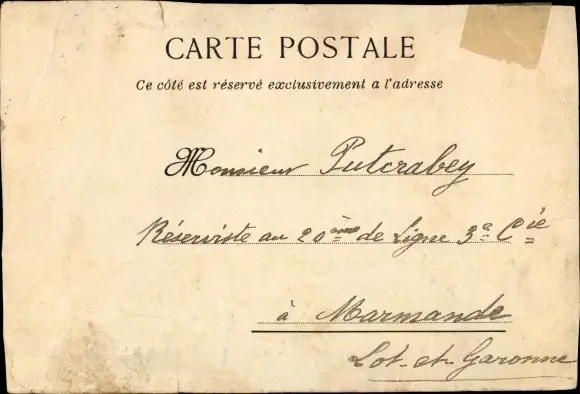 CARTE POSTALE
Ce côté est réservé exclusivement a l'adresse
Monsieur Putcrabey
Réserviste au 20ème de Ligne 3e Cie
à Marmande
Lot-et-Garonne